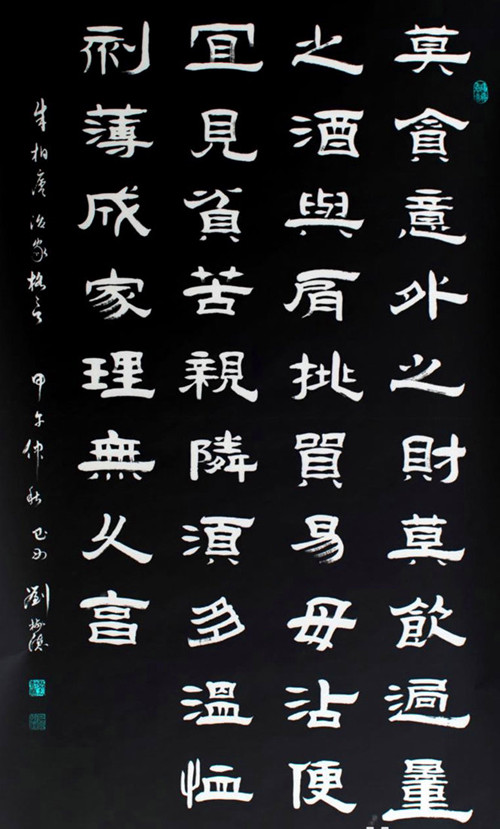 莫貪意外之財莫飲過量
之酒與肩挑貿易毋沾便
宜見貧苦親隣須多溫恤
刻薄成家理無久享
朱柏廬治家格言 甲午仲秋 劉